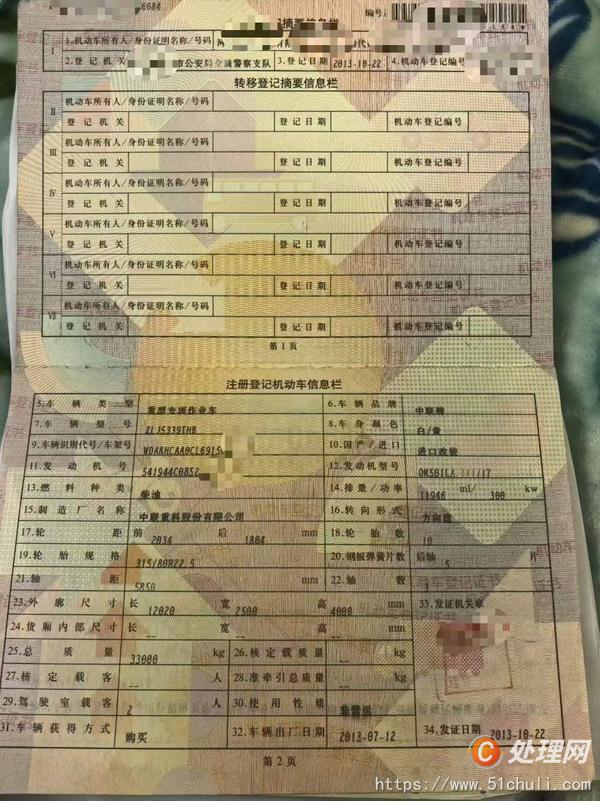 6684
摘要信息栏
编号:
1.机动车所有人/身份证明名称/号码
2.登记机关 市公安局交通警察支队 3.登记日期 2013-10-22 4.机动车登记编号
转移登记摘要信息栏
II 机动车所有人/身份证明名称/号码
登记机关 登记日期 机动车登记编号
III 机动车所有人/身份证明名称/号码
登记机关 登记日期 机动车登记编号
IV 机动车所有人/身份证明名称/号码
登记机关 登记日期 机动车登记编号
V 机动车所有人/身份证明名称/号码
登记机关 登记日期 机动车登记编号
VI 机动车所有人/身份证明名称/号码
登记机关 登记日期 机动车登记编号
VII 机动车所有人/身份证明名称/号码
登记机关 登记日期 机动车登记编号
第1页
注册登记机动车信息栏
5.车辆类型 重型专项作业车 6.车辆品牌 中联牌
7.车辆型号 ZLJ5339THB 8.车身颜色 白/黄
9.车辆识别代号/车架号 WDAKHCAA0CL6915 10.国产/进口 进口改装
11.发动机号 541944C0852 12.发动机型号
13.燃料种类 柴油 14.排量/功率 11946 ml/ 300 kw
15.制造厂名称 中联重科股份有限公司 16.转向形式 方向盘
17.轮距 前 2034 后 1804 mm 18.轮胎数 10
19.轮胎规格 315/80R22.5 20.钢板弹簧片数 后轴 5 片
21.轴距 5850 mm 22.轴数 3
23.外廓尺寸 长 12020 宽 2500 高 4000 mm 33.发证机关章
24.货厢内部尺寸 长 -- 宽 -- 高 -- mm
25.总质量 33000 kg 26.核定载质量 -- kg
27.核定载客 -- 人 28.准牵引总质量 -- kg
29.驾驶室载客 2 人 30.使用性质 非营运
31.车辆获得方式 购买 32.车辆出厂日期 2013-07-12 34.发证日期 2013-10-22
第2页
C 处理网
https://www.51chuli.com